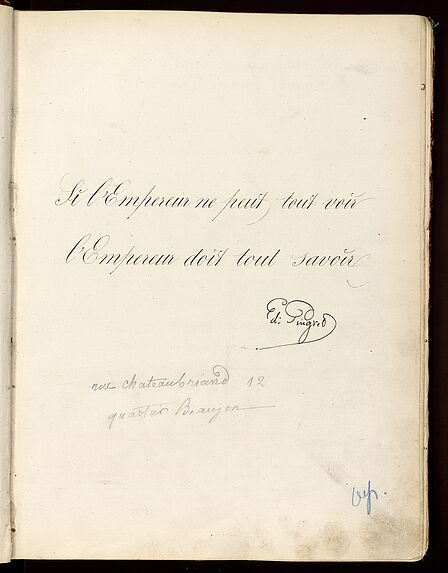 Si l'Empereur ne peut tout voir
l'Empereur doit tout savoir
Ed: Pingret
rue chateaubriand 12
quartier Beaujon